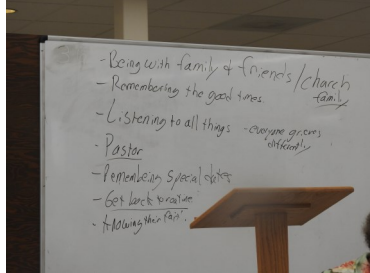 - Being with family & friends/church
family
- Remembering the good times
- Listening to all things - everyone grieves
differently
- Pastor
- Remembeing special dates
- Get back to routine
- knowing their pain.